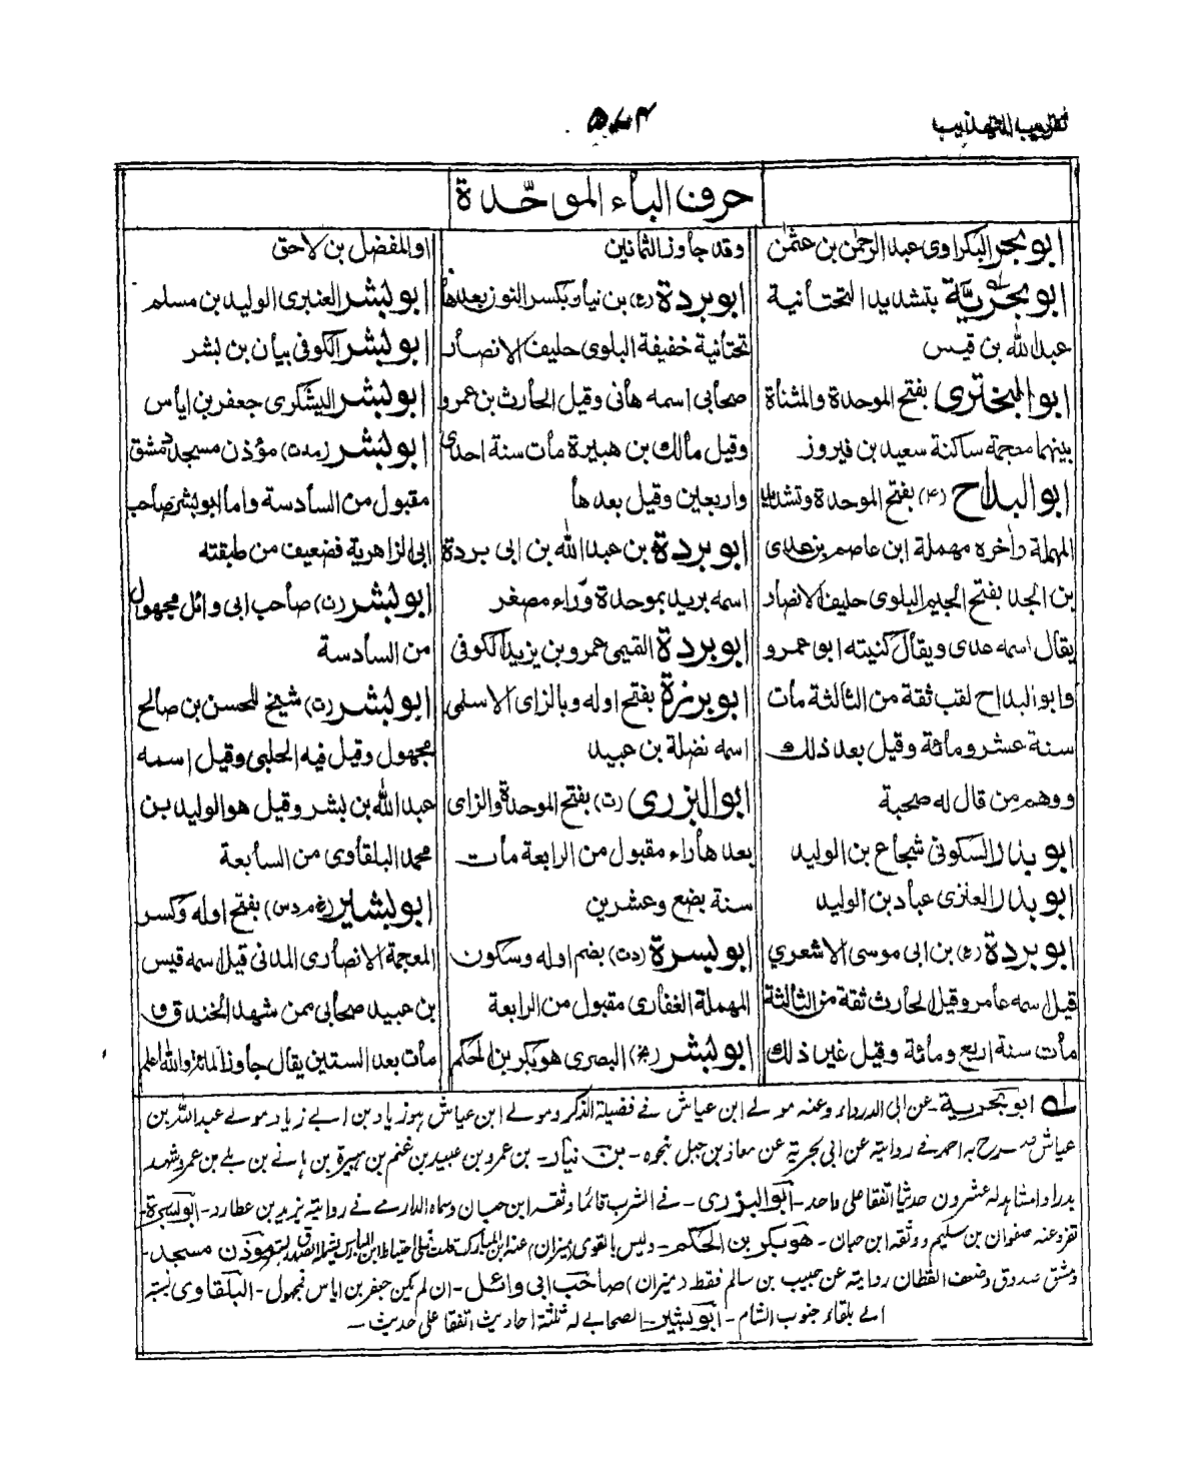 تقريب التهذيب
٥٧٤
حرف الباء الموحّدة
ابو بحر البكراوى عبد الرحمن بن عثمن
ابو بحريّة بتشديد التحتانية
عبد الله بن قيس
ابو البخترى بفتح الموحدة والمثناة
بينهما معجمة ساكنة سعيد بن فيروز
ابو البداح (٤) بفتح الموحدة وتشديد
المهملة وأخره مهملة ابن عاصم بن عدى
بن الجد بفتح الجيم البلوى حليف الانصار
يقال اسمه عدى ويقال كنيته ابو عمرو
وابو البداح لقب ثقة من الثالثة مات
سنة عشر ومائة وقيل بعد ذلك
ووهم من قال له صحبة
ابو بدر السكونى شجاع بن الوليد
ابو بدر العنزى عباد بن الوليد
ابو بردة (ع) بن ابى موسى الاشعري
قيل اسمه عامر وقيل الحارث ثقة من الثالثة
مات سنة اربع ومائة وقيل غير ذلك
وقد جاوز الثمانين
ابو بردة (ع) بن نيار بكسر النون بعدها
تحتانية خفيفة البلوى حليف الانصار
صحابى اسمه هانى وقيل الحارث بن عمرو
وقيل مالك بن هبيرة مات سنة احدى
واربعين وقيل بعدها
ابو بردة بن عبد الله بن ابى بردة
اسمه بريد بموحدة وراء مصغر
ابو بردة القيمى عمرو بن يزيد الكوفى
ابو برزة بفتح اوله وبالزاى الاسلمى
اسمه نضلة بن عبيد
ابو البزرى (ت) بفتح الموحدة والزاى
بعدها راء مقبول من الرابعة مات
سنة بضع وعشرين
ابو بسرة (دت) بضم اوله وسكون
المهملة الغفارى مقبول من الرابعة
ابو بشر البصرى هو بكر بن الحكم
او المفضل بن لاحق
ابو بشر العنبرى الوليد بن مسلم
ابو بشر الكوفى بيان بن بشر
ابو بشر اليشكرى جعفر بن اياس
ابو بشر (مدت) مؤذن مسجد دمشق
مقبول من السادسة واما ابو بشر صاحب
ابى الزاهرية فضعيف من طبقته
ابو بشر (ت) صاحب ابى وائل مجهول
من السادسة
ابو بشر (ت) شيخ للحسن بن صالح
مجهول وقيل فيه الحلبى وقيل اسمه
عبد الله بن بشر وقيل هو الوليد بن
محمد البلقاوى من السابعة
ابو بشير (خ م د س) بفتح اوله وكسر
المعجمة الانصارى المدنى قيل اسمه قيس
بن عبيد صحابى ممن شهد الخندق و
مات بعد الستين يقال جاوز المائة والله اعلم
له ابو بحرية - عن ابى الدرداء وعنه مولے ابن عياش فے فضيلة الذكر ومولے ابن عياش هو زياد بن ابے زياد مولے عبد الله بن
عياش صرح به احمد فے رواية عن ابى بحرية عن معاذ بن جبل نحوه - بن نيار - بن عمرو بن عبيد بن غنم بن هبيرة بن هانے بن بلے بن عمرو شهد
بدرا وامشاهد له عشرون حديثا اتفقا على واحد - ابو البزرى - فے الشرب قائما وثقه ابن حبان وسماه الدارمے فے رواية يزيد بن عطارد - ابو بسرة -
تفرد عنه صفوان بن سليم ووثقه ابن حبان - هو بكر بن الحكم - وليس بالقوى (ميزان) مؤذن مسجد -
دمشق صدوق وضعف القطان رواية عن حبيب بن سالم فقط (ميزان) صاحب ابى وائل - ان لم يكن جعفر بن اياس فمجهول - البلقاوى نسبة
الے بلقاء جنوب الشام - ابو بشير - الصحابے له ثلثة احاديث اتفقا على حديث -